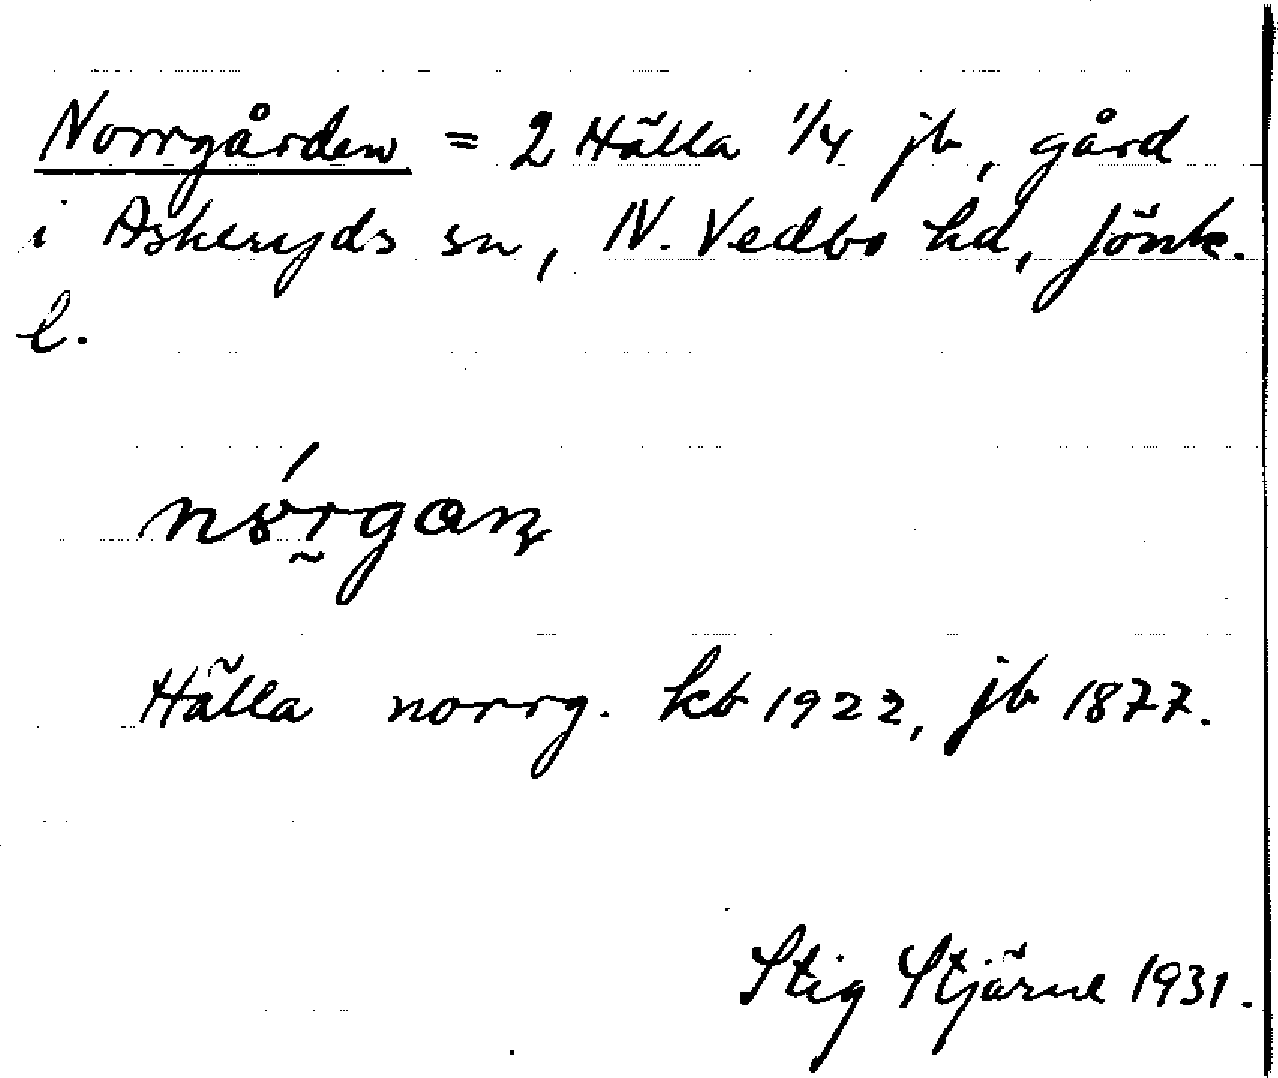 Norrgården = 2 Hälla 1/4 jb, gård
i Askeryds sn, N. Vedbo hd, Jönk.
l.
Hälla norrg. kb 1922, jb 1877.
Stig Stjärne 1931.